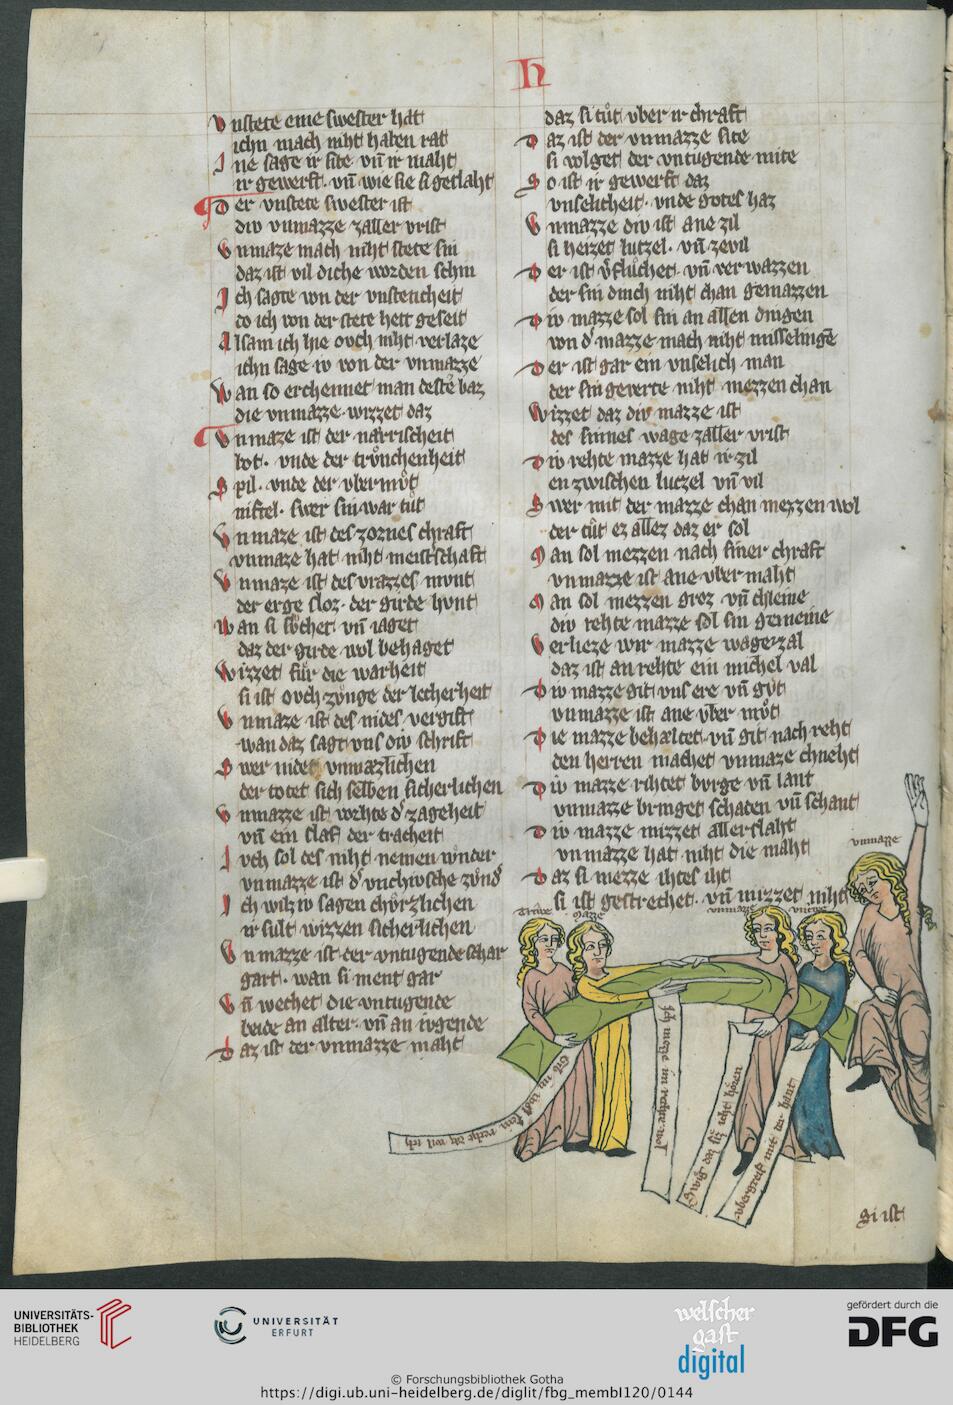 h
Vnstete eine swester hat
ichn mach niht haben rat
Ine sage ir site vn̄ ir maht
ir gewerft · vn̄ wie sie si geslaht
Der vnstete swester ist
div vnmazze zaller vrist
Vnmaze mach niht stete sin
daz ist vil diche worden schin
Ich sagte von der vnsteticheit
do ich von der stete hett geseit
Alsam ich hie ovch niht verlaze
ichn sage iv von der vnmazze
Wan so erchennet man deste baz
die vnmazze · wizzet daz
Vnmaze ist der narrischeit
bot · vnde der trvnchenheit
Spil · vnde der vbermvͦt
niftel · swer sin war tuͦt
Vnmaze ist des zornes chraft
vnmaze hat niht meistschaft
Vnmaze ist des vrazzes mvnt
der erge sloz · der girde hvnt
Wan si suͦchet vn̄ iaget
daz der girde wol behaget
Wizzet fuͤr die warheit
si ist ovch zvnge der lecherheit
Vnmaze ist des nides vergift
wan daz sagt vns div schrift
Swer nidet vnmæzlichen
der totet sich selben sicherlichen
Vnmazze ist wehte d' zageheit
vn̄ ein slaf der tracheit
Ivch sol des niht nemen wnder
vnmazze ist d' vnchivsche zvnd'
Ich wil iv sagen chvrzlichen
ir sult wizzen sicherlichen
Vnmazze ist der vntugende schar
gart · wan si ment gar
Vn̄ wechet die vntugende
beide an alter · vn̄ an ivgende
Daz ist der vnmazze maht
daz si tuͦt vber ir chraft
Daz ist der vnmazze site
si volget der vntugende mite
So ist ir gewerft daz
vnselicheit · vnde gotes haz
Vnmazze div ist ane zil
si heizet lutzel · vn̄ zevil
Der ist v'fluͦchet · vn̄ verwazzen
der sin dinch niht chan gemazzen
Div mazze sol sin an allen dingen
von d' mazze mach niht misselingē
Der ist gar ein vnselich man
der sin geverte niht mezzen chan
Wizzet daz div mazze ist
des sinnes wage zaller vrist
Div rehte mazze hat ir zil
enzwischen luczel vn̄ vil
Swer mit der mazze chan mezzen wol
der tuͦt ez allez daz er sol
Man sol mezzen nach siner chraft
vnmazze ist ane vbermaht
Man sol mezzen groz vn̄ chleine
div rehte mazze sol sin gemeine
Verlieze wir mazze wage zal
daz ist an rehte ein michel val
Div mazze git vns ere vn̄ gvͦt
vnmazze ist ane vber mvͦt
Die mazze behæltet · vn̄ git nach reht
den herren machet vnmaze chneht
Div mazze rihtet bvrge vn̄ lant
vnmazze bringet schaden vn̄ schant
Div mazze mizzet allerslaht
vnmazze hat niht die maht
Daz si mezze ihtes iht
si ist gestrechet · vn̄ mizzet niht
vnmazze
mazze
vnmazze
Ich mezze im rehte wol
vbergreif mit der hant
Si ist
UNIVERSITÄTS-
BIBLIOTHEK
HEIDELBERG
UNIVERSITÄT
ERFURT
welscher
gast
digital
gefördert durch die
DFG
© Forschungsbibliothek Gotha
https://digi.ub.uni-heidelberg.de/diglit/fbg_membI120/0144